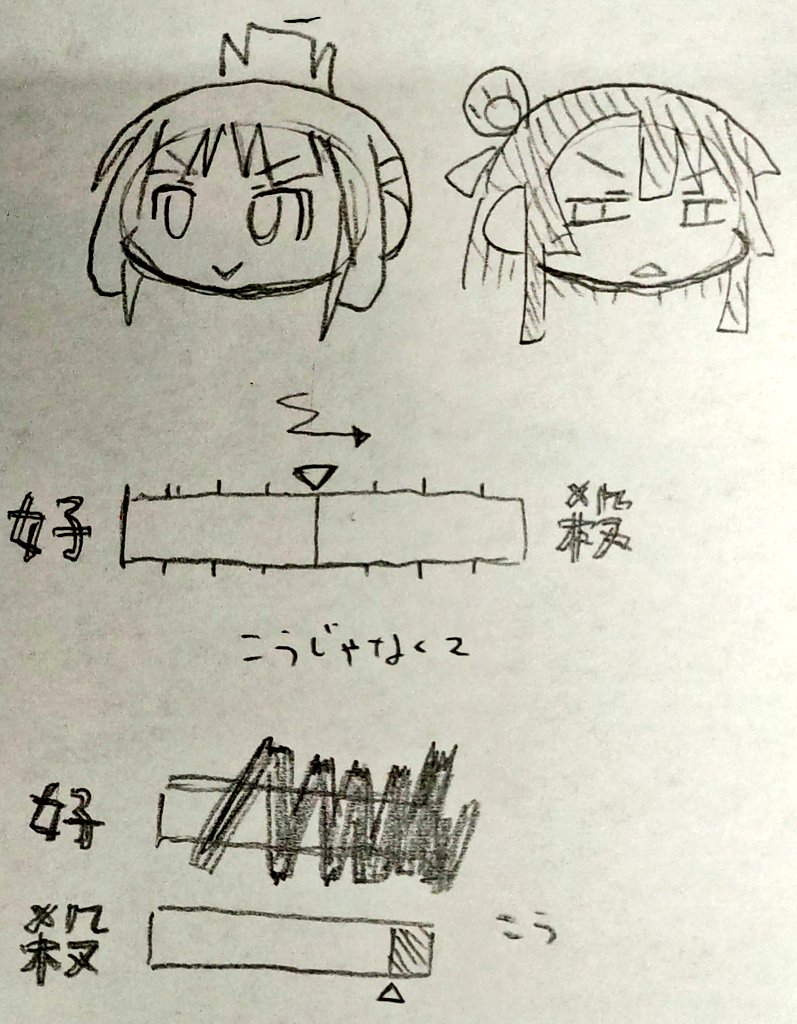 好 殺
こうじゃなくて
好
殺 こう